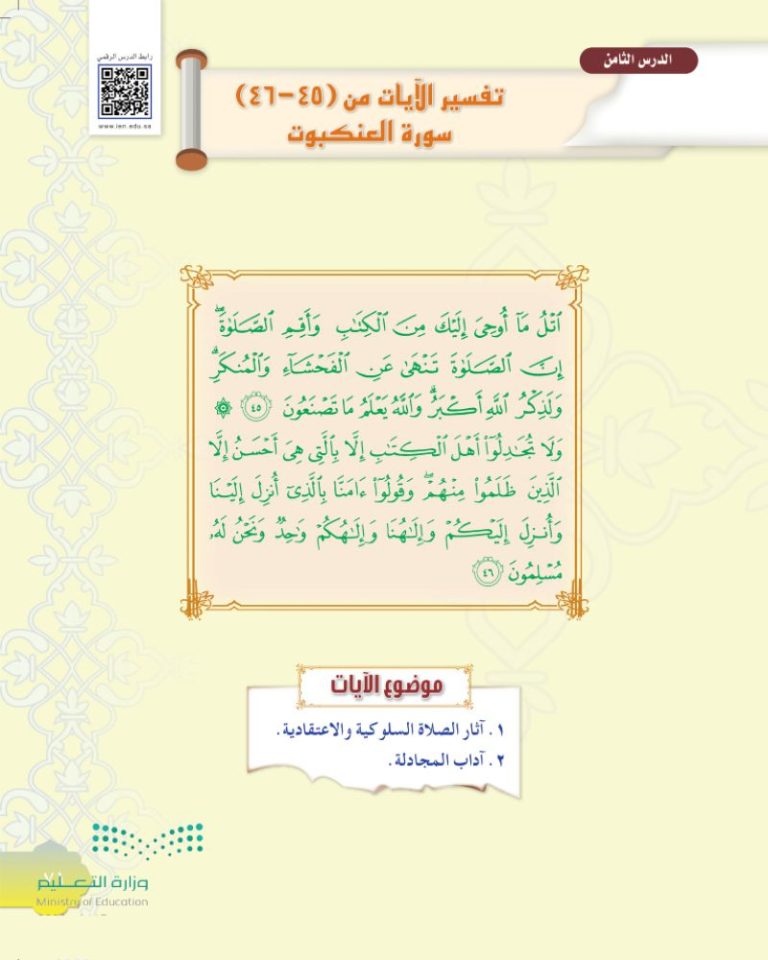 رابط الدرس الرقمي
www.ien.edu.sa
الدرس الثامن
تفسير الآيات من (٤٥-٤٦)
سورة العنكبوت
ٱتْلُ مَآ أُوحِىَ إِلَيْكَ مِنَ ٱلْكِتَٰبِ وَأَقِمِ ٱلصَّلَوٰةَۖ
إِنَّ ٱلصَّلَوٰةَ تَنْهَىٰ عَنِ ٱلْفَحْشَآءِ وَٱلْمُنكَرِۗ
وَلَذِكْرُ ٱللَّهِ أَكْبَرُۗ وَٱللَّهُ يَعْلَمُ مَا تَصْنَعُونَ ٤٥ ۞
وَلَا تُجَٰدِلُوٓا۟ أَهْلَ ٱلْكِتَٰبِ إِلَّا بِٱلَّتِى هِىَ أَحْسَنُ إِلَّا
ٱلَّذِينَ ظَلَمُوا۟ مِنْهُمْۖ وَقُولُوٓا۟ ءَامَنَّا بِٱلَّذِىٓ أُنزِلَ إِلَيْنَا
وَأُنزِلَ إِلَيْكُمْ وَإِلَٰهُنَا وَإِلَٰهُكُمْ وَٰحِدٌ وَنَحْنُ لَهُۥ
مُسْلِمُونَ ٤٦
موضوع الآيات
١ . آثار الصلاة السلوكية والاعتقادية.
٢ . آداب المجادلة.
٧١
وزارة التعليم
Ministry of Education